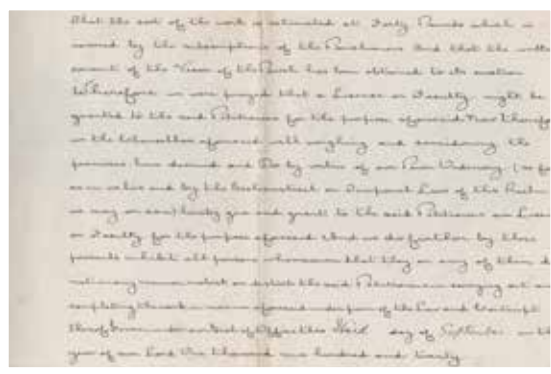 that the cost of the work is estimated at Forty Pounds which is
covered by the subscriptions of the Parishioners And that the
consent of the Vicar of the Parish has been obtained to its erection
Wherefore we were prayed that a License or Faculty might be
granted to the said Petitioners for the purpose aforesaid Now therefore
we the Chancellor aforesaid well weighing and considering the
premises have decreed and Do by virtue of our Power Ordinary
as in us lies and by the Ecclesiastical or Temporal Laws of this Realm
we may or can hereby give and grant to the said Petitioners our License
or Faculty for the purpose aforesaid And we do further by these
presents inhibit all persons whomsoever that they or any of them do
not in any manner molest or disturb the said Petitioners in carrying out or
completing the work in manner aforesaid under pain of the Law and Contempt
thereof Given under our Seal of Office this day of September in the
year of our Lord One thousand nine hundred and twenty